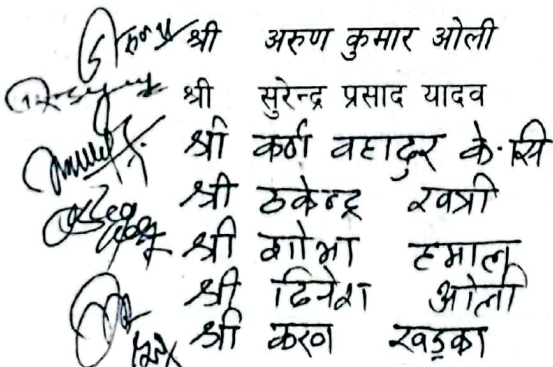 श्री अरुण कुमार ओली
श्री सुरेन्द्र प्रसाद यादव
श्री कर्ण वहादुर के.सि
श्री ठकेन्द्र खत्री
श्री शोभा हमाल
श्री दिनेश ओली
श्री करण खड्का